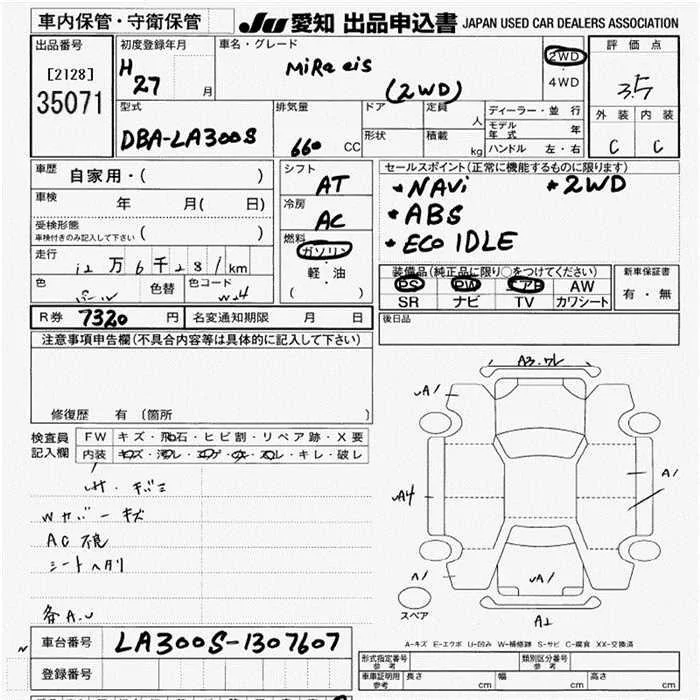 車内保管・守衛保管
JU 愛知 出品申込書 JAPAN USED CAR DEALERS ASSOCIATION
出品番号
[2128]
35071
初度登録年月
H
27 月
車名・グレード
MiRa eis
(2WD)
2WD
・
4WD
評価点
3.5
外装 内装
C C
型式
DBA-LA300S
排気量
660 CC
ドア
形状
定員 人
積載 kg
ディーラー・並行
モデル年式 年
ハンドル 左・右
車歴
自家用・( )
車検
年 月( 日)
受検形態
車検付きのみ記入して下さい ( )
走行
12万6千281km
色
色替
色コード
W24
シフト
AT
冷房
AC
燃料
ガソリン
・
軽・油
( )
セールスポイント(正常に機能するものに限ります)
・NAVi ・2WD
・ABS
・ECO IDLE
装備品(純正品に限り○をつけてください)
PS PW エアB AW
SR ナビ TV カワシート
新車保証書
有・無
後日品
R券 7320 円 名変通知期限 月 日
注意事項申告欄(不具合内容等は具体的に記入して下さい)
修復歴 有 〔箇所 〕
検査員記入欄
FW キズ・飛石・ヒビ割・リペア跡・X要
内装 キズ・汚レ・コゲ・穴・スレ・キレ・破レ
Wカバーキズ
AC不良
シートヘタリ
各A.U
A3.ワレ
A1
A4
A1
A1
A1
A2
スペア
A-キズ E-エクボ U-凹み W-補修跡 S-サビ C-腐食 XX-交換済
車台番号 LA300S-1307607
登録番号
形式指定番号
参考
類別区分番号
参考
車庫証明用
参考
長さ cm 幅 cm 高さ cm